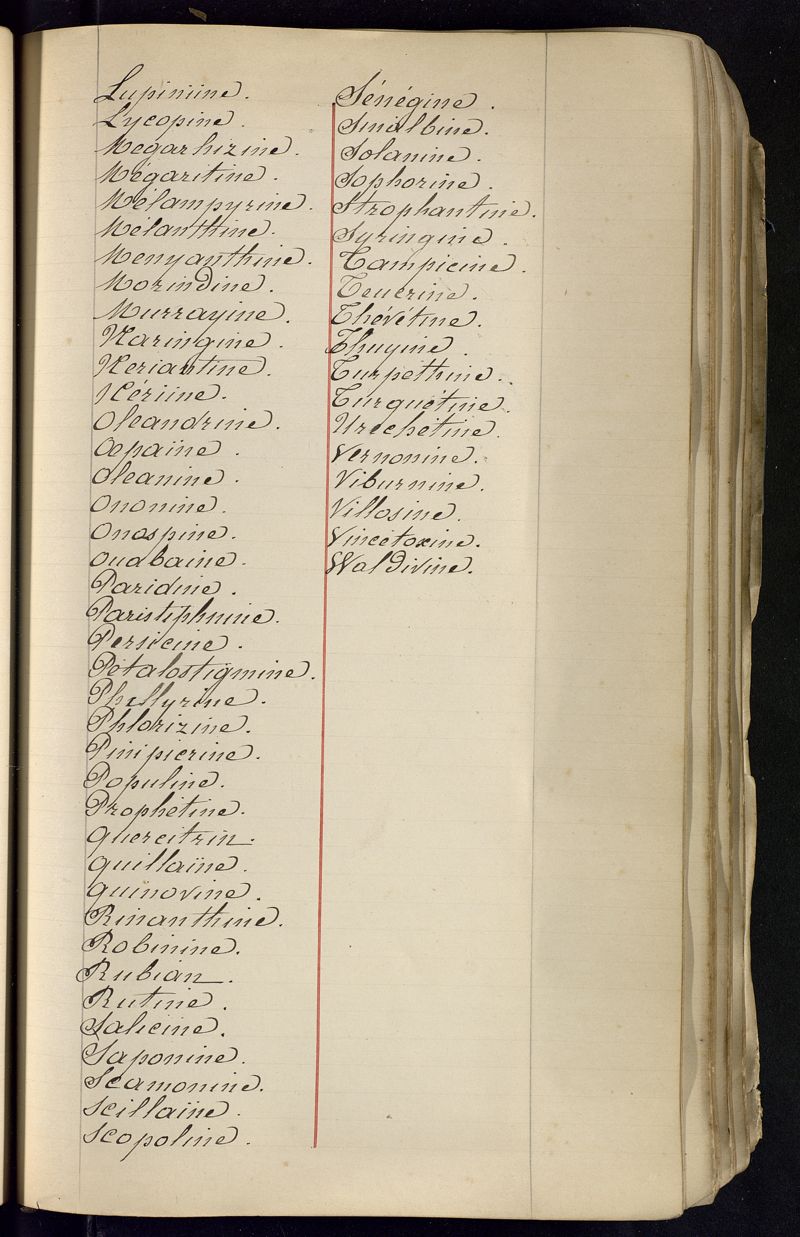 Lupiniine.
Lycopine.
Mégarhizine.
Mégaritine.
Mélampyrine.
Mélanthine.
Menyanthine.
Morindine.
Murrayine.
Naringine.
Neriantine.
Nériine.
Oleandrine.
Oepaïne.
Oleanine.
Ononine.
Onospine.
Ouabaine.
Paridine.
Paristiphnine.
Persicine.
Pétalostigmine.
Phellyrine.
Phlorizine.
Pinipicrine.
Populine.
Prophétine.
Quercitrin.
Quillaïne.
Quinovine.
Rinanthine.
Robinine.
Rubian.
Rutine.
Salicine.
Saponine.
Scamonine.
Scillaïne.
Scopoline.
Sénégine.
Smilbine.
Solanine.
Sophorine.
Strophantine.
Syringine.
Tampicine.
Teucrine.
Thévétine.
Thuyine.
Turpethine.
Turguétine.
Urechétine.
Vernonine.
Viburnine.
Villosine.
Vincetoxine.
Waldivine.